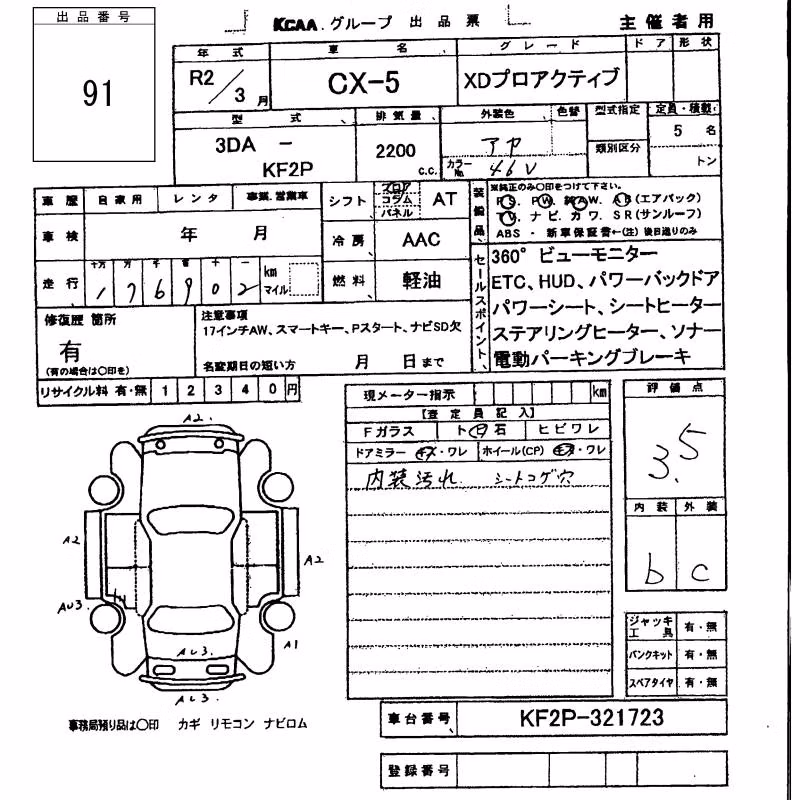 出品番号
91
KCAA グループ 出品票
主催者用
年式 車名 グレード ドア 形状
R2/3月 CX-5 XDプロアクティブ
型式 排気量 外装色 色替 型式指定 定員・積載
3DA - KF2P
2200 c.c.
アヤ
カラーNo. 46V
類別区分
5名
トン
車歴 自家用 レンタ 事業.営業車
シフト フロア コラム パネル AT
車検 年 月
冷房 AAC
走行 十万 万 千 百 十 一
176902 km マイル
燃料 軽油
装備品
※純正のみ〇印をつけて下さい。
P S. P W. 純A W. A B (エアバック)
T V. ナビ. カワ. S R (サンルーフ)
ABS ・ 新車保証書←(注) 後日送りのみ
セールスポイント
360°ビューモニター
ETC、HUD、パワーバックドア
パワーシート、シートヒーター
ステアリングヒーター、ソナー
電動パーキングブレーキ
修復歴 箇所
有
(有の場合は〇印を)
注意事項
17インチAW、スマートキー、Pスタート、ナビSD欠
名変期日の短い方 月 日まで
リサイクル料 有・無 12340円
現メーター指示 km
【査定員記入】
Fガラス ト(ビ)石 ヒビワレ
ドアミラー キズ・ワレ ホイール(CP) キズ・ワレ
内装汚れ シートコゲ穴
評価点
3.5
内装 外装
b c
A2.
A2
A2
AU3.
A1
AU3.
AU3.
ジャッキ工具 有・無
パンクキット 有・無
スペアタイヤ 有・無
事務局預り品は〇印 カギ リモコン ナビロム
車台番号 KF2P-321723
登録番号